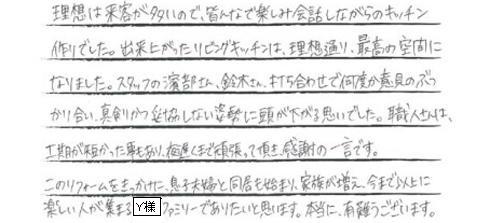 理想は来客が多いので、皆んなで楽しみ会話しながらのキッチン
作りでした。出来上がったリビングキッチンは、理想通り、最高の空間に
なりました。スタッフの濱部さん、鈴木さん、打ち合わせで何度か意見のぶつ
かり合い、真剣かつ妥協しない姿勢に頭が下がる思いでした。職人さんは、
工期が短かった事もあり、夜遅くまで頑張って頂き、感謝の一言です。
このリフォームをきっかけに、息子夫婦と同居も始まり、家族が増え、今まで以上に
楽しい人が集まるY様ファミリーでありたいと思います。本当に、有難うございます。